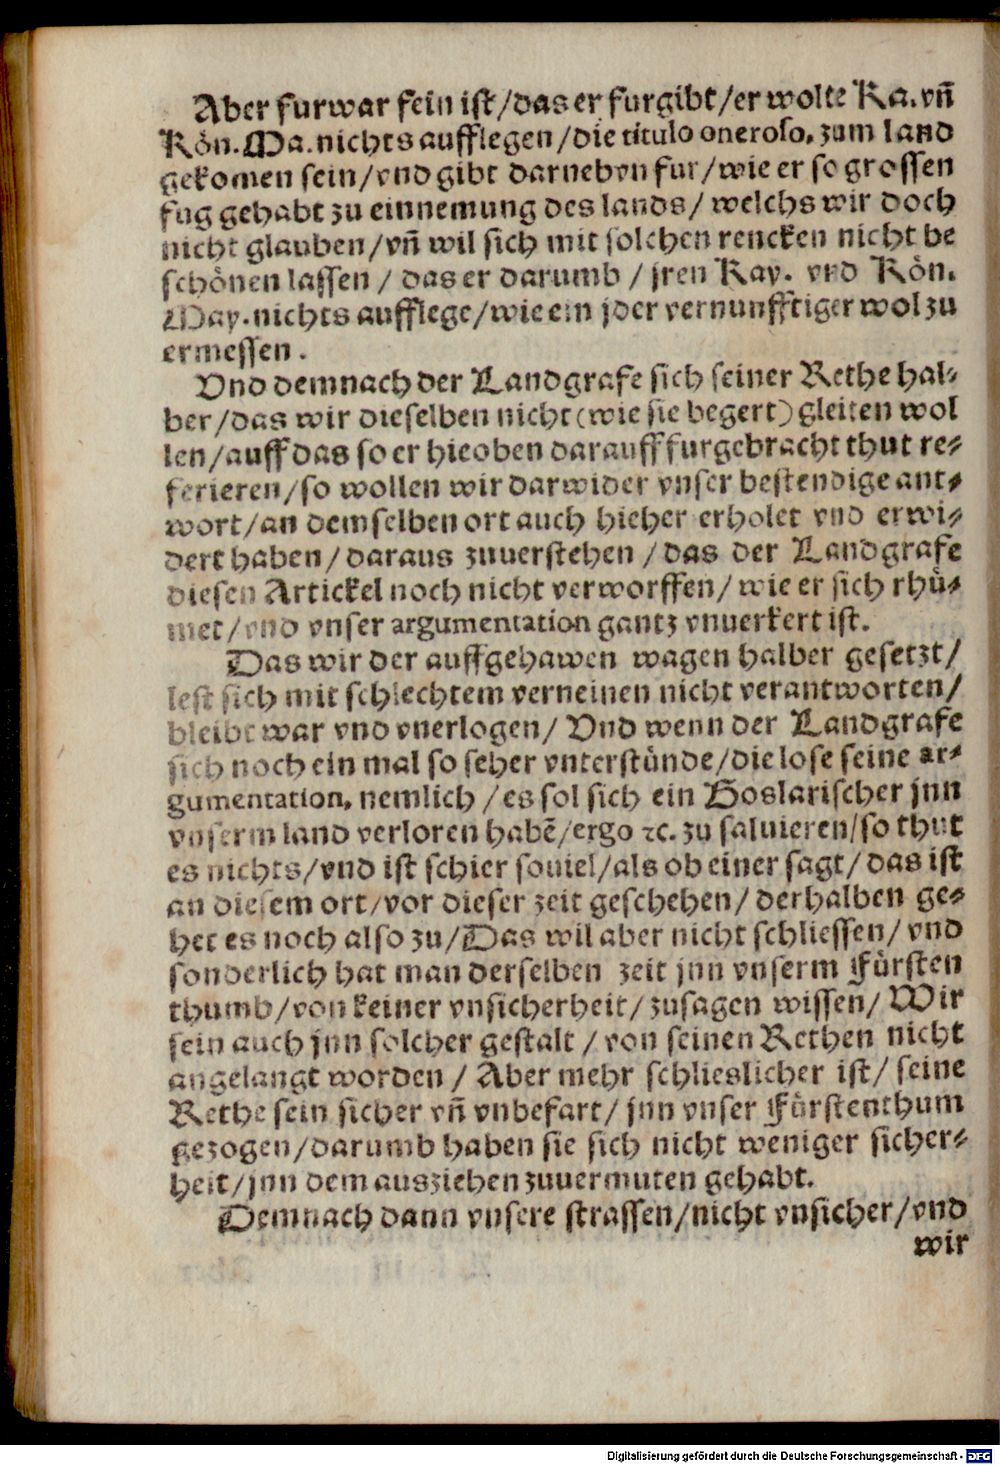 Aber furwar fein ist/das er furgibt/er wolte Ka. vñ
Kön. Ma. nichts aufflegen/die titulo oneroso, zum land
gekomen sein/vnd gibt darneben fur/wie er so grossen
fug gehabt zu einnemung des lands/ welchs wir doch
nicht glauben/vñ wil sich mit solchen rencken nicht be
schönen lassen / das er darumb / jren Kay. vnd Kön.
May. nichts aufflege/wie ein jder vernunfftiger wol zu
ermessen.
Vnd demnach der Landgrafe sich seiner Rethe hal-
ber/das wir dieselben nicht (wie sie begert) gleiten wol
len/auff das so er hieoben darauff furgebracht thut re-
ferieren/so wollen wir darwider vnser bestendige ant-
wort/an demselben ort auch hieher erholet vnd erwi-
dert haben/daraus zuuerstehen /das der Landgrafe
diesen Artickel noch nicht verworffen/ wie er sich rhü-
met/vnd vnser argumentation gantz vnuerkert ist.
Das wir der auffgehawen wagen halber gesetzt/
lest sich mit schlechtem verneinen nicht verantworten/
bleibt war vnd vnerlogen/ Vnd wenn der Landgrafe
sich noch ein mal so seher vnterstünde/die lose seine ar-
gumentation, nemlich /es sol sich ein Goslarischer jnn
vnserm land verloren habē/ergo ꝛc. zu saluieren/so thut
es nichts/vnd ist schier souiel/als ob einer sagt/das ist
an diesem ort/vor dieser zeit geschehen/ derhalben ge-
het es noch also zu/Das wil aber nicht schliessen/ vnd
sonderlich hat man derselben zeit jnn vnserm Fürsten
thumb/von keiner vnsicherheit/zusagen wissen/ Wir
sein auch jnn solcher gestalt / von seinen Rethen nicht
angelangt worden / Aber mehr schlieslicher ist/ seine
Rethe sein sicher vñ vnbefart/ jnn vnser Fürstenthum
gezogen/darumb haben sie sich nicht weniger sicher-
heit/jnn dem ausziehen zuuermuten gehabt.
Demnach dann vnsere strassen/nicht vnsicher/vnd
wir
Digitalisierung gefördert durch die Deutsche Forschungsgemeinschaft - DFG